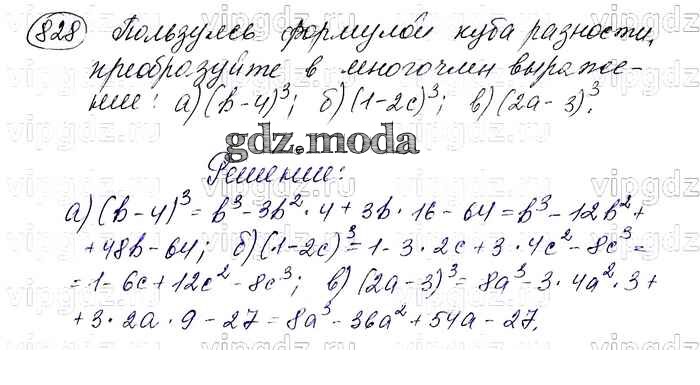 828 Пользуясь формулой куба разности,
преобразуйте в многочлен выраже-
ние: а) (b-4)³; б) (1-2c)³; в) (2a-3)³.
gdz.moda
Решение:
а) (b-4)³ = b³ - 3b² · 4 + 3b · 16 - 64 = b³ - 12b² +
+ 48b - 64; б) (1-2c)³ = 1 - 3 · 2c + 3 · 4c² - 8c³ =
= 1 - 6c + 12c² - 8c³; в) (2a-3)³ = 8a³ - 3 · 4a² · 3 +
+ 3 · 2a · 9 - 27 = 8a³ - 36a² + 54a - 27.